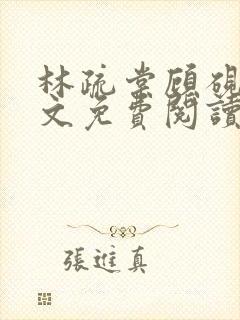 林疏棠顾砚
文免費閱讀
張進真